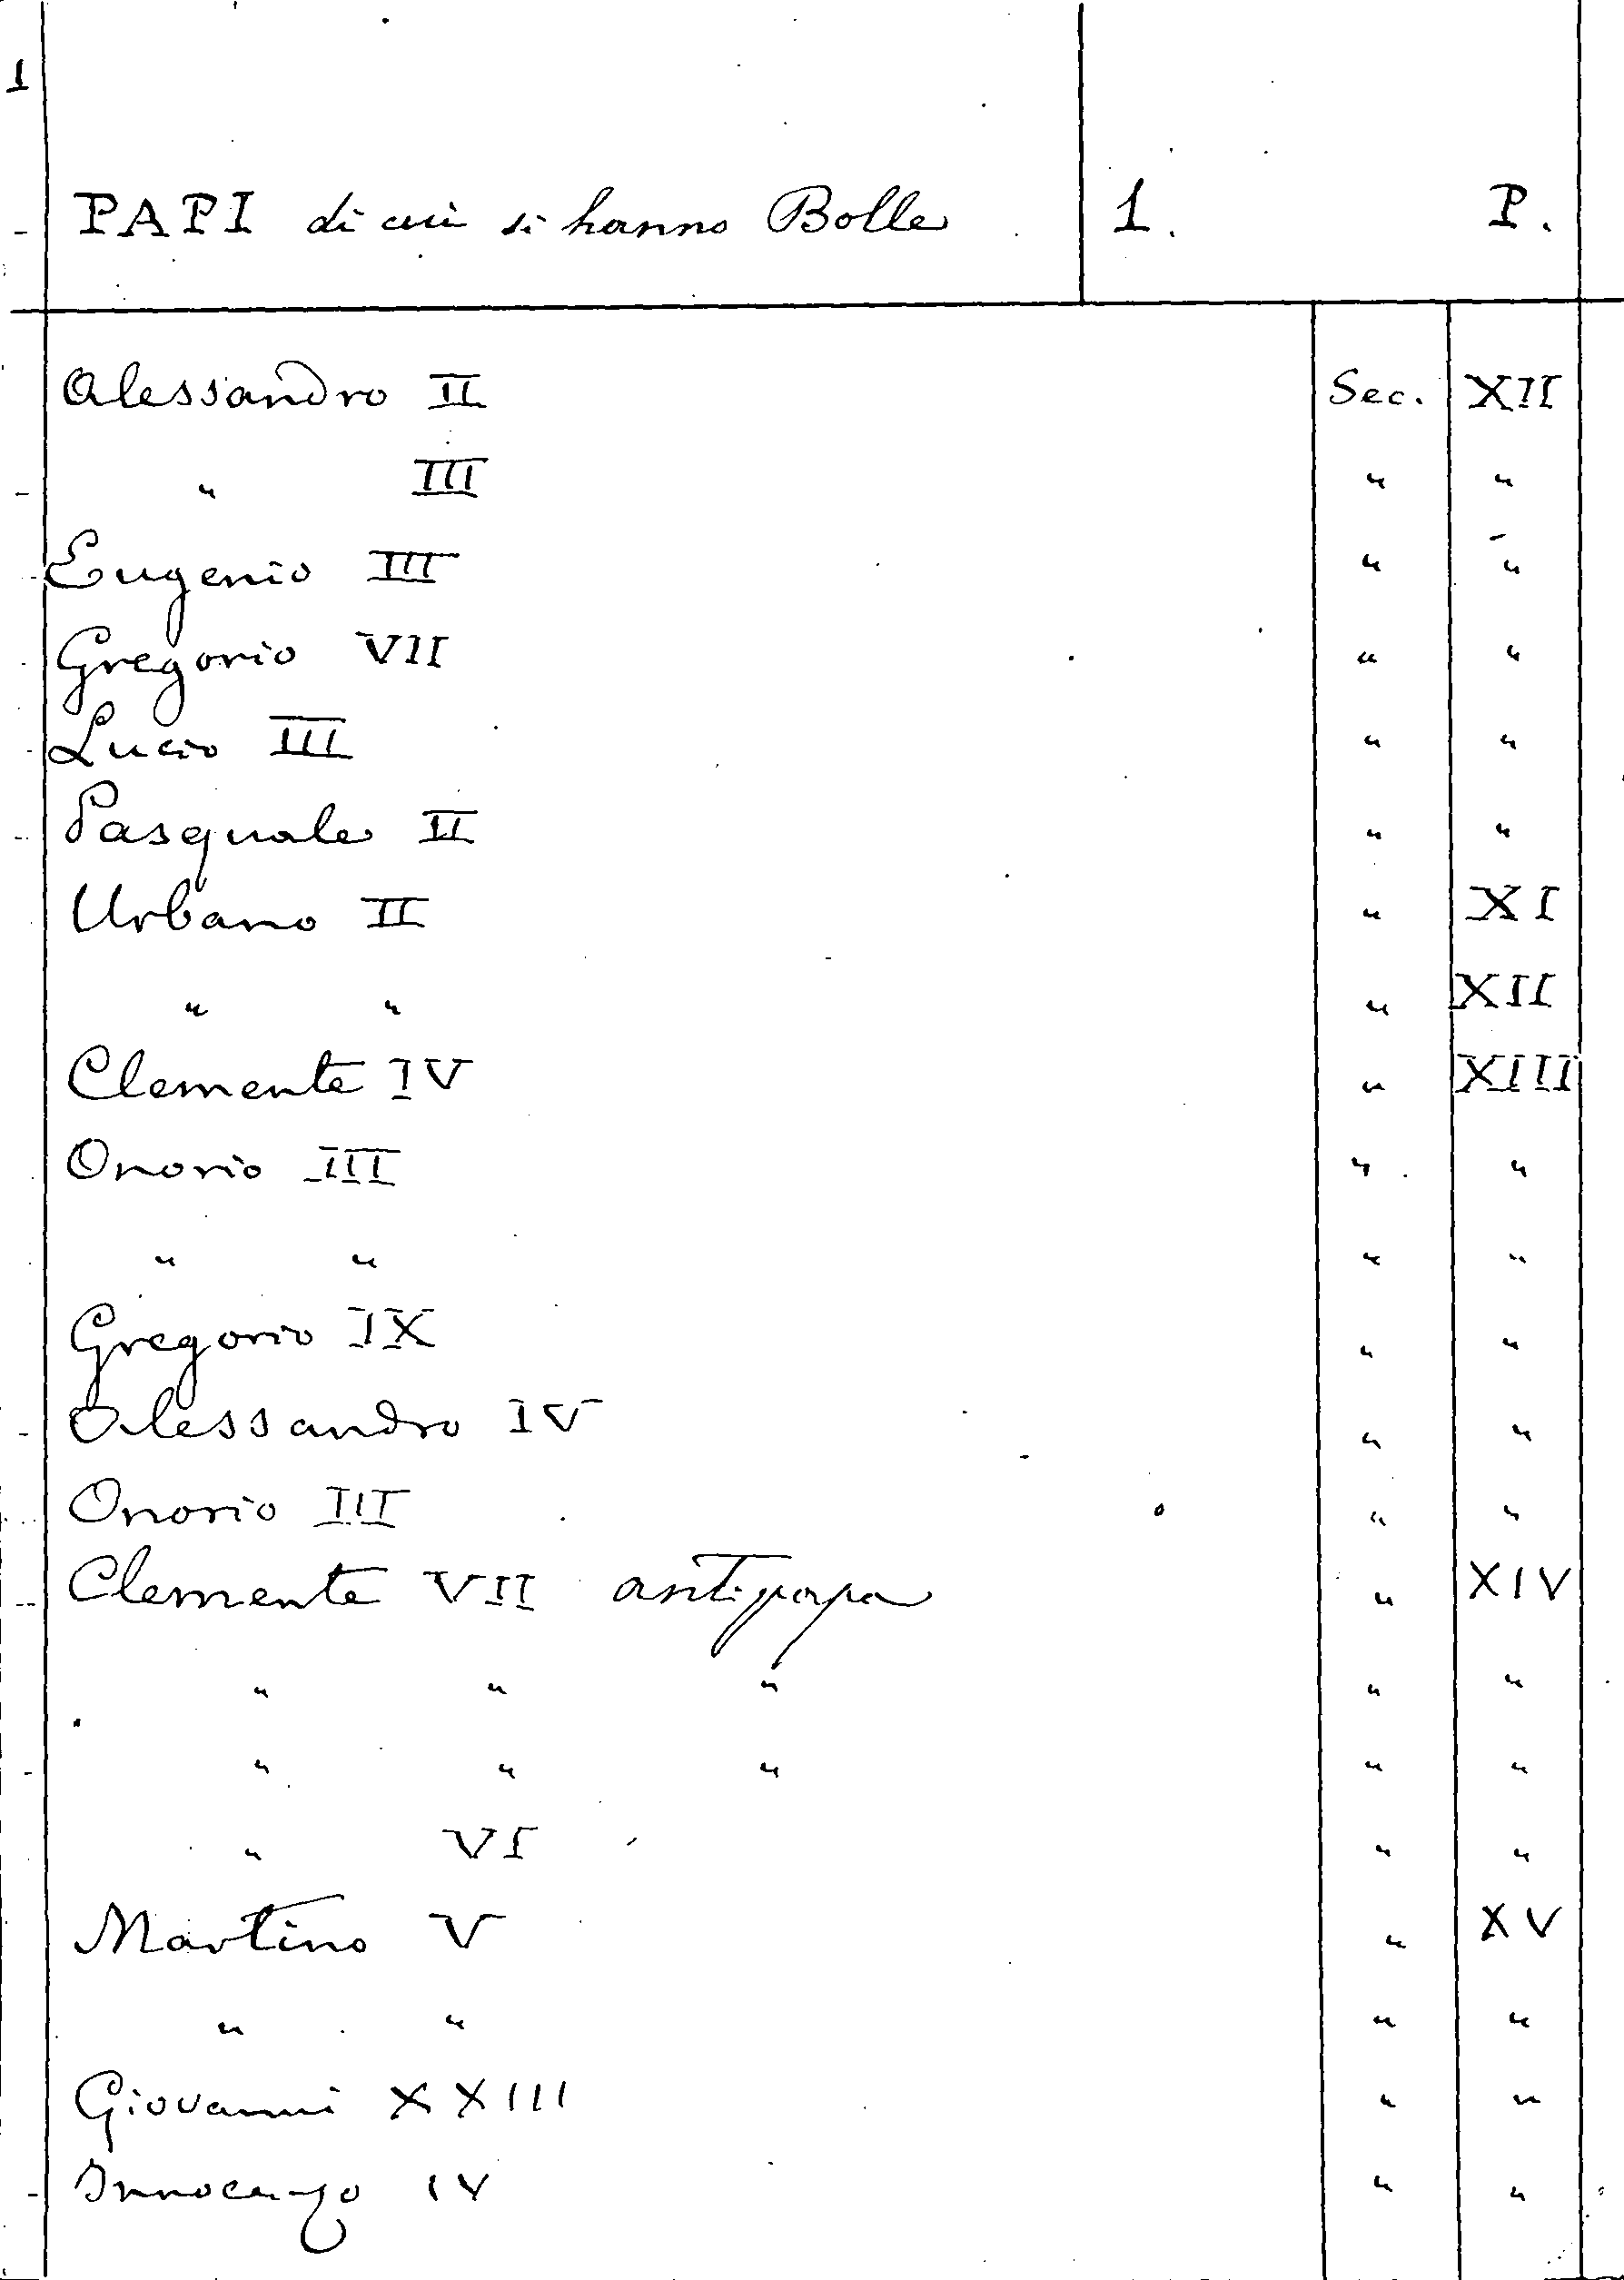 1
PAPI di cui si hanno Bolle 1. P.
Alessandro II Sec. XII
" III " "
Eugenio III " "
Gregorio VII " "
Lucio III " "
Pasquale II " "
Urbano II " XI
" " " XII
Clemente IV " XIII
Onorio III " "
" " " "
Gregorio IX " "
Alessandro IV " "
Onorio III " "
Clemente VII antipapa " XIV
" " " " "
" " " " "
" VI " "
Martino V " XV
" " " "
Giovanni XXIII " "
Innocenzo IV " "